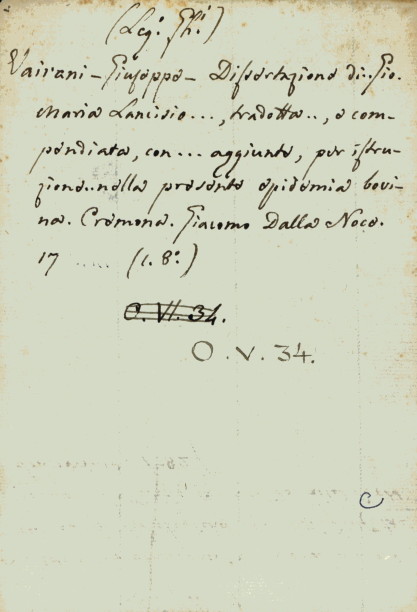 (Leg.º Gh.i)
Vairani - Giuseppe - Dissertazione di Gio.
Maria Lancisio ..., tradotta .., e com-
pendiata, con ... aggiunte, per istru-
zione .. nella presente epidemia bovi-
na. Cremona. Giacomo Dalla Noce.
17 ..... (i. 8.º)
O. VI. 34.
O. V. 34.
C